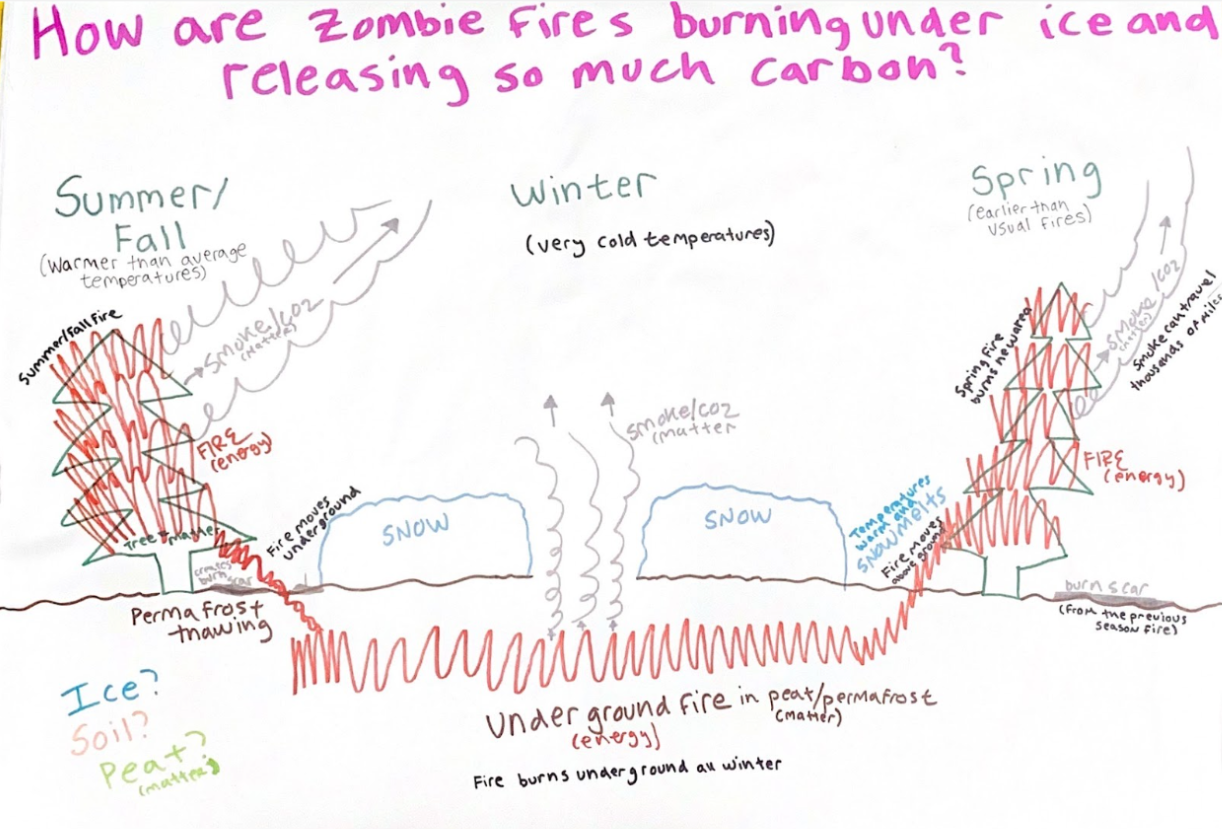 How are Zombie Fires burning under ice and
releasing so much carbon?
Summer/
Fall
(Warmer than average
temperatures)
Summer/Fall Fire
Smoke/CO2
(Matter)
FIRE
(energy)
Tree = Matter
creates
burn scar
Permafrost
thawing
Fire moves
underground
Ice?
Soil?
Peat?
(matter)
Winter
(very cold temperatures)
SNOW
Smoke/CO2
(Matter
SNOW
Underground Fire in peat/permafrost
(energy)
(Matter)
Fire burns underground all winter
Spring
(earlier than
usual fires)
Spring Fire
burns new area
Smoke/CO2
(matter)
Smoke can travel
thousands of miles
FIRE
(energy)
Temperatures
warm and
snow melts
Fire moves
above ground
burn scar
(From the previous
season fire)